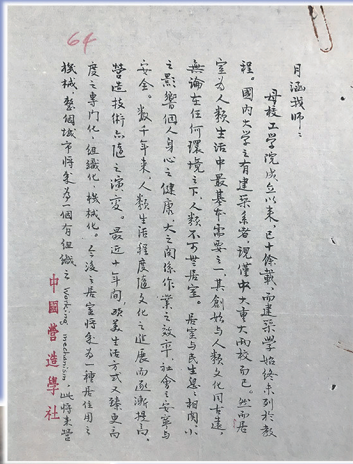 64
月涵我師：
母校工學院成立以來，已十餘載，而建築學始終未列於教
程。國內大學之有建築系者，現僅中大重大兩校而已。然而居
室為人類生活中最基本需要之一，其創始與人類文化同古遠，
無論在任何環境之下，人類不可無居室。居室與民生息息相關，小
之影響個人身心之健康，大之關係作業之效率，社會之安寧與
安全。數千年來，人類生活程度隨文化之進展而逐漸提高，
營造技術亦隨之演變。最近十年間，歐美生活方式又臻更高
度之專門化，組織化，機械化。今後之居室將成為一種居住用之
機械，整個城市將成為一個有組織之 Working mechanism，此將來營
中國營造學社